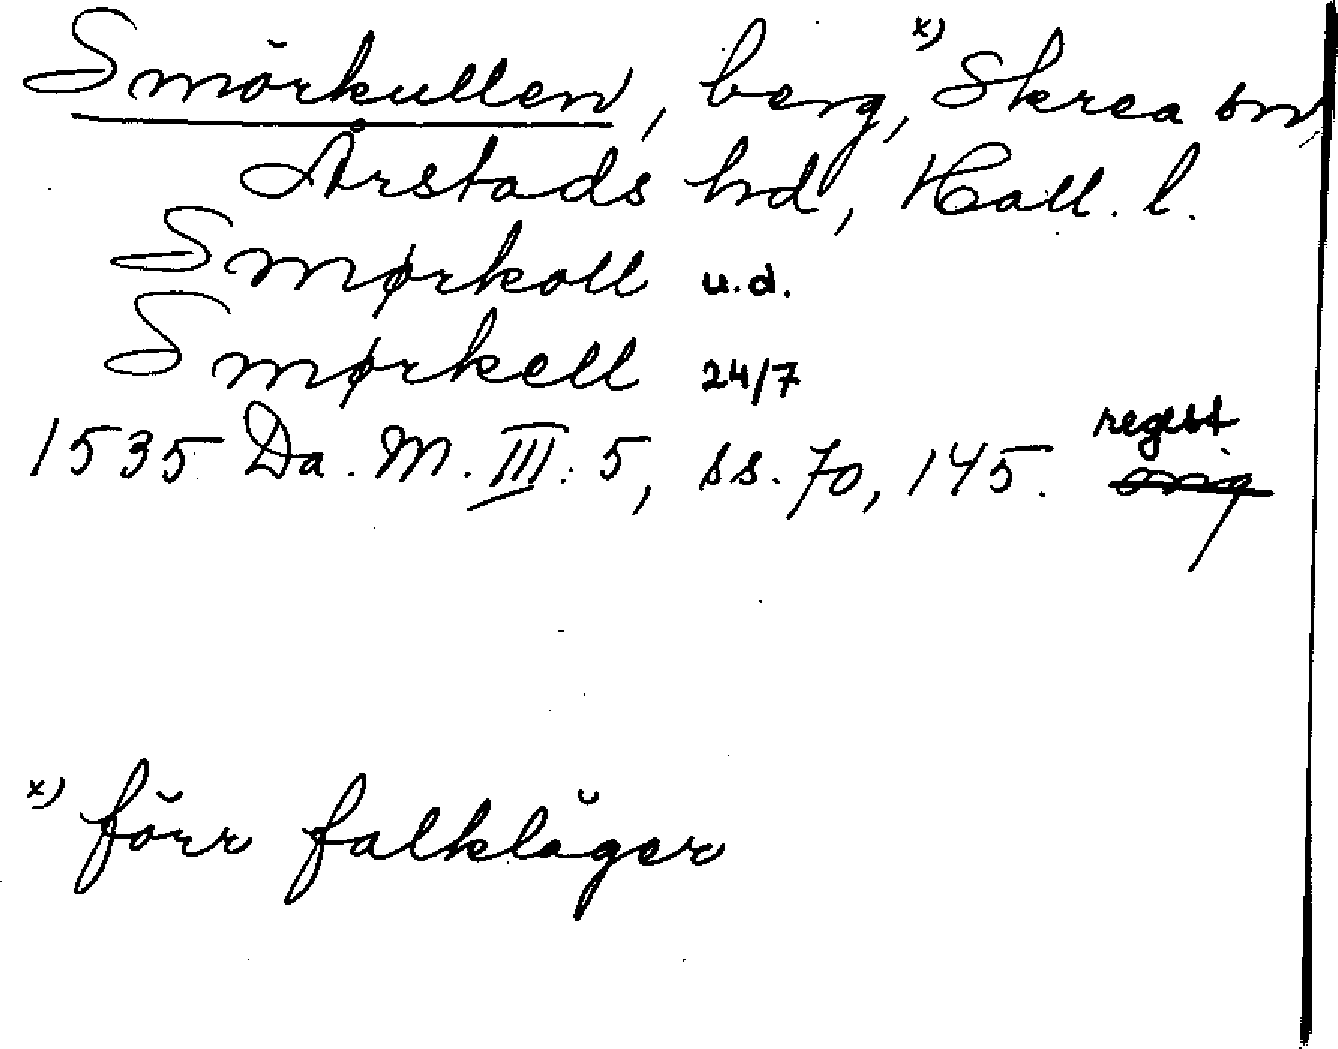 Smörkullen, berg, x) Skrea sn,
Årstads hd, Hall. l.
Smørkoll u.d.
Smørkell 24/7
1535 Da. M. III: 5, ss. 70, 145. regest.
x) förr falkläger